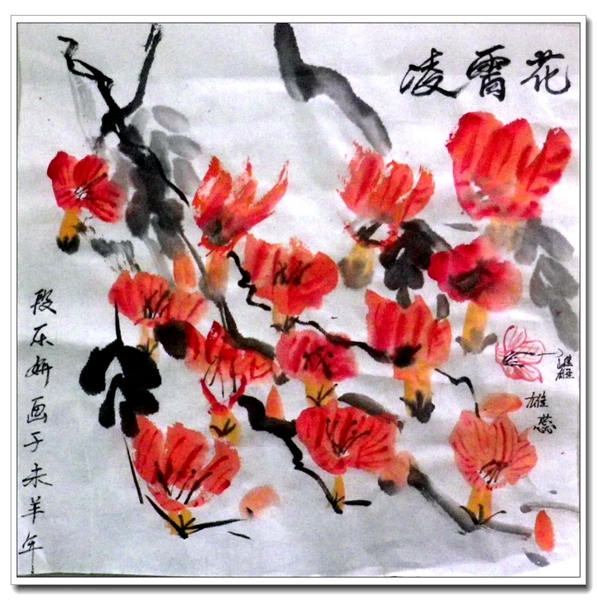 凌霄花
雌蕊
雄蕊
殷乐妍画于未羊年